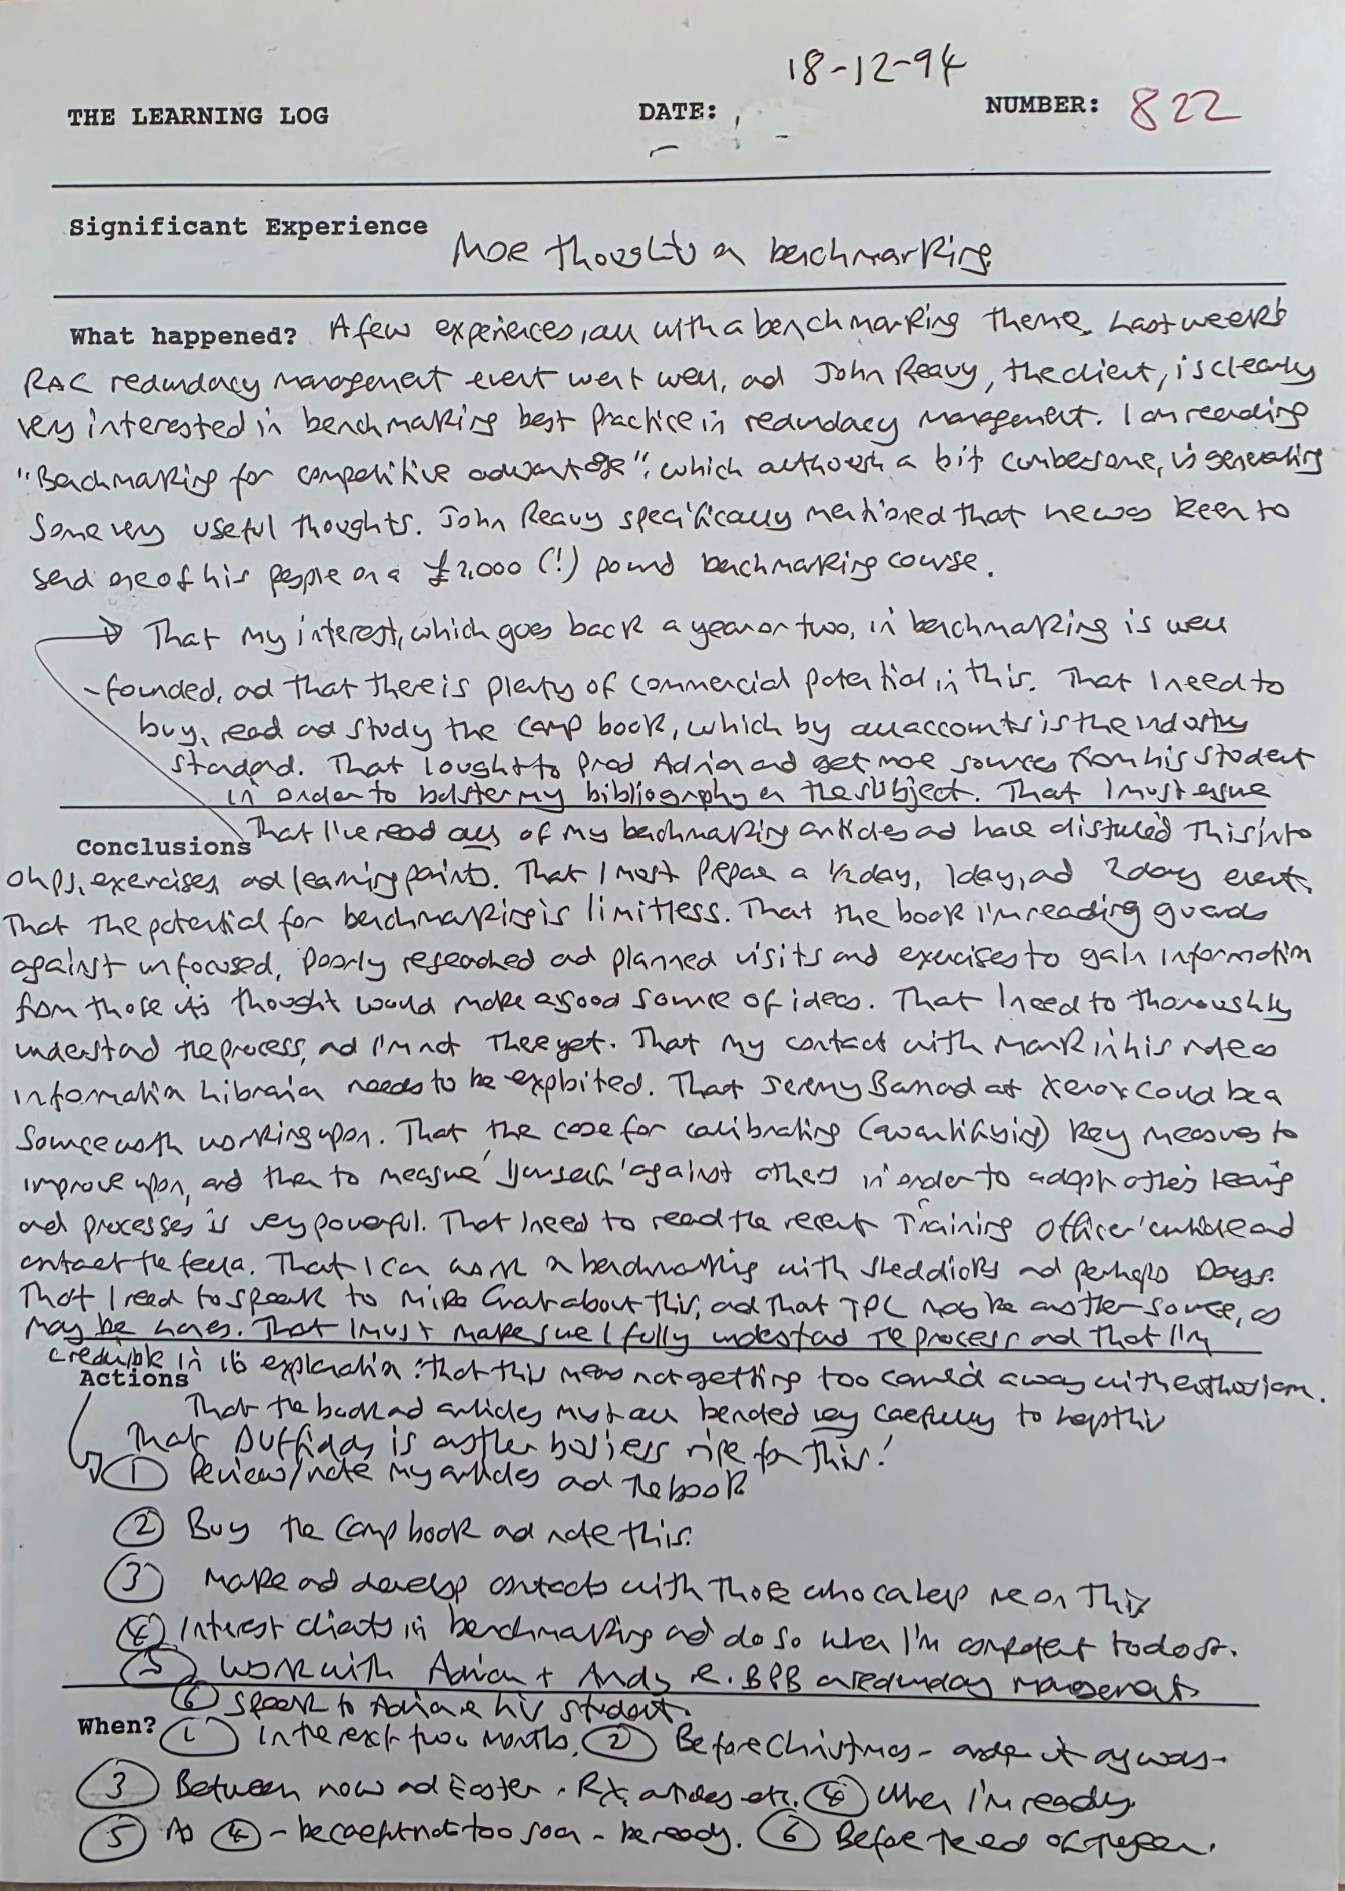 18-12-94
THE LEARNING LOG DATE: NUMBER: 822
Significant Experience More thoughts on benchmarking
What happened? A few experiences, all with a benchmarking theme. Last week's
RAC redundancy management event went well, and John Reavy, the client, is clearly
very interested in benchmarking best practice in redundancy management. I am reading
"Benchmarking for competitive advantage", which although a bit cumbersome, is generating
some very useful thoughts. John Reavy specifically mentioned that he was keen to
send one of his people on a £2,000 (!) pound benchmarking course.
That my interest, which goes back a year or two, in benchmarking is well
-founded, and that there is plenty of commercial potential in this. That I need to
buy, read and study the Camp book, which by all accounts is the industry
standard. That I ought to prod Adrian and get more sources from his student
in order to bolster my bibliography on the subject. That I must ensure
Conclusions That I've read all of my benchmarking articles and have distilled this into
ohps, exercises and learning points. That I must prepare a 1/2 day, 1 day, and 2 day event.
That the potential for benchmarking is limitless. That the book I'm reading guards
against unfocused, poorly researched and planned visits and exercises to gain information
from those it's thought would make a good source of ideas. That I need to thoroughly
understand the process, and I'm not there yet. That my contact with Mark in his role as
Information Librarian needs to be exploited. That Jeremy Barnard at Xerox could be a
source worth working upon. That the case for calibrating (quantifying) key measures to
improve upon, and then to measure 'yourself' against others in order to adopt others learning
and processes is very powerful. That I need to read the recent 'Training Officer' article and
contact the fella. That I can work on benchmarking with and perhaps Days.
That I need to speak to Mike about this, and that TPL may be another source, as
may be . That I must make sure I fully understand the process and that I'm
credible in its explanation: that this means not getting too carried away with enthusiasm.
Actions
That the book and articles must all be noted very carefully to help this
That is another business ripe for this!
① Review/note my articles and the book
② Buy the Camp book and note this.
③ Make and develop contacts with those who can help me on this
④ Interest clients in benchmarking and do so when I'm competent to do so.
⑤ Work with Adrian + Andy R. BPB on redundancy management
⑥ Speak to Adrian re his student.
When? ① In the next two months. ② Before Christmas - order it anyway -
③ Between now and Easter. - articles etc. ④ When I'm ready
⑤ As ④ - be careful not too soon - be ready. ⑥ Before the end of the year.